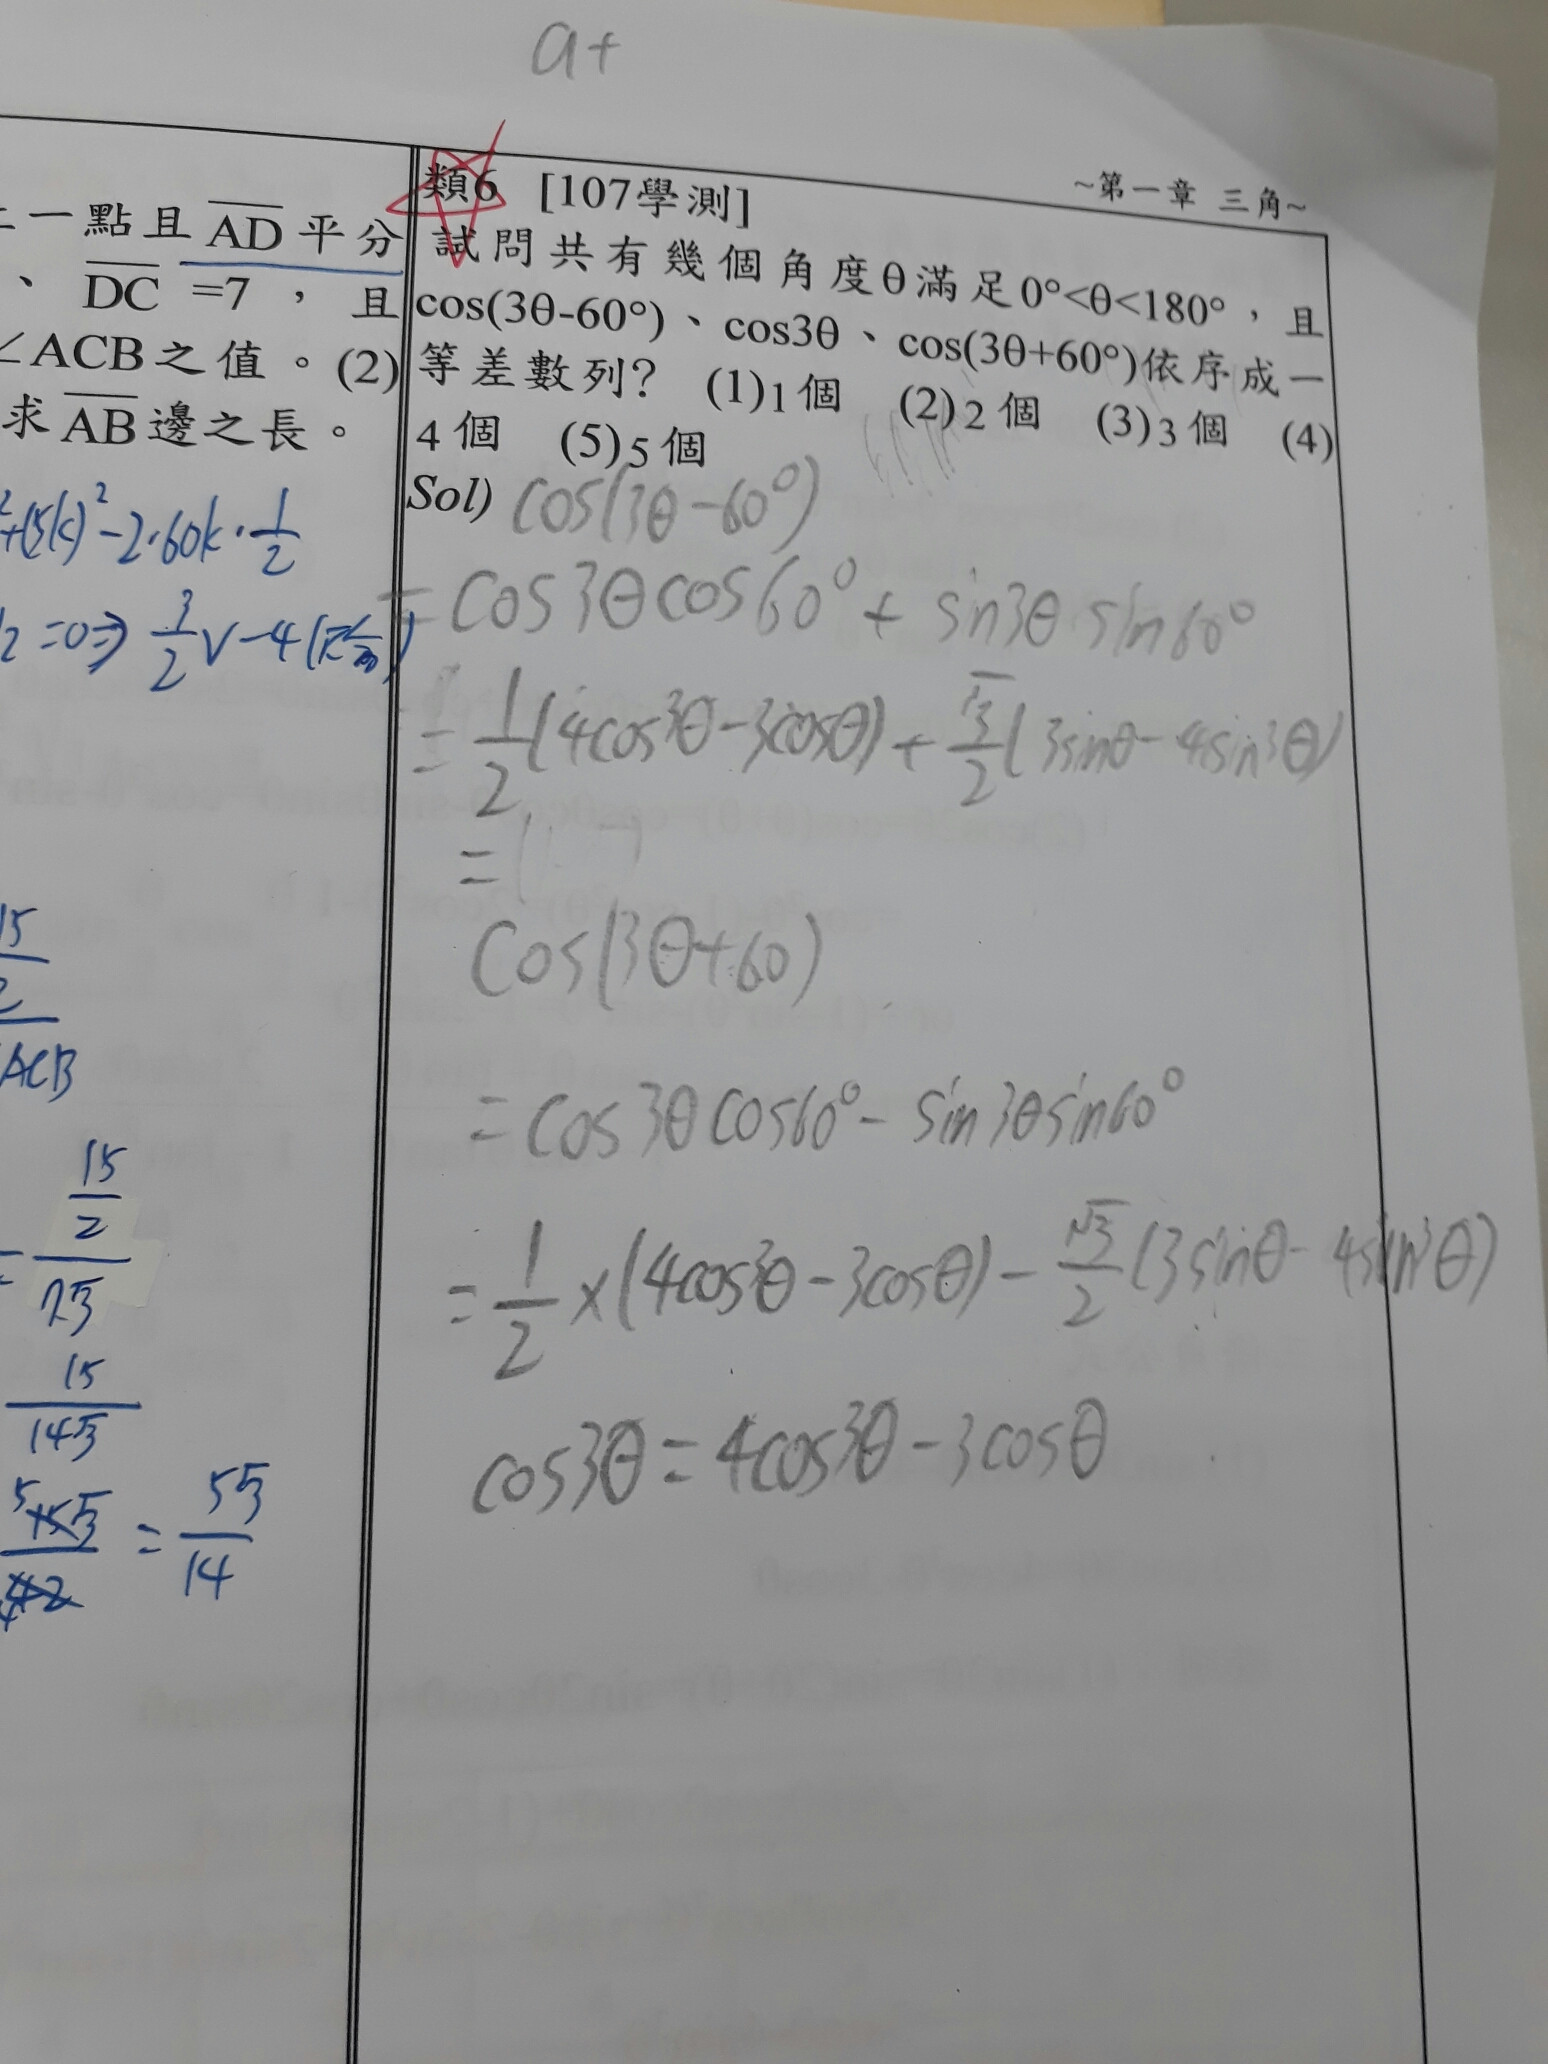 a+
~第一章 三角~
一點且 AD 平分
、 DC =7 , 且
∠ACB之值。(2)
求 AB 邊之長。
²+(5k)²-2·60k·1/2
=0⇒ 3/2 V -4
15/2
ACB
= 15/2 / 7√3
15/14√3
= 5√3/14
類6 [107學測]
試問共有幾個角度θ滿足0°<θ<180°,且
cos(3θ-60°)、cos3θ、cos(3θ+60°)依序成一
等差數列? (1)1個 (2)2個 (3)3個 (4)
4個 (5)5個
Sol) cos(3θ-60°)
= cos3θcos60°+ sin3θ sin60°
= 1/2(4cos³θ-3cosθ)+ √3/2(3sinθ-4sin³θ)
=
cos(3θ+60)
= cos3θcos60°- sin3θsin60°
= 1/2×(4cos³θ-3cosθ)- √3/2(3sinθ-4sin³θ)
cos3θ=4cos³θ-3cosθ